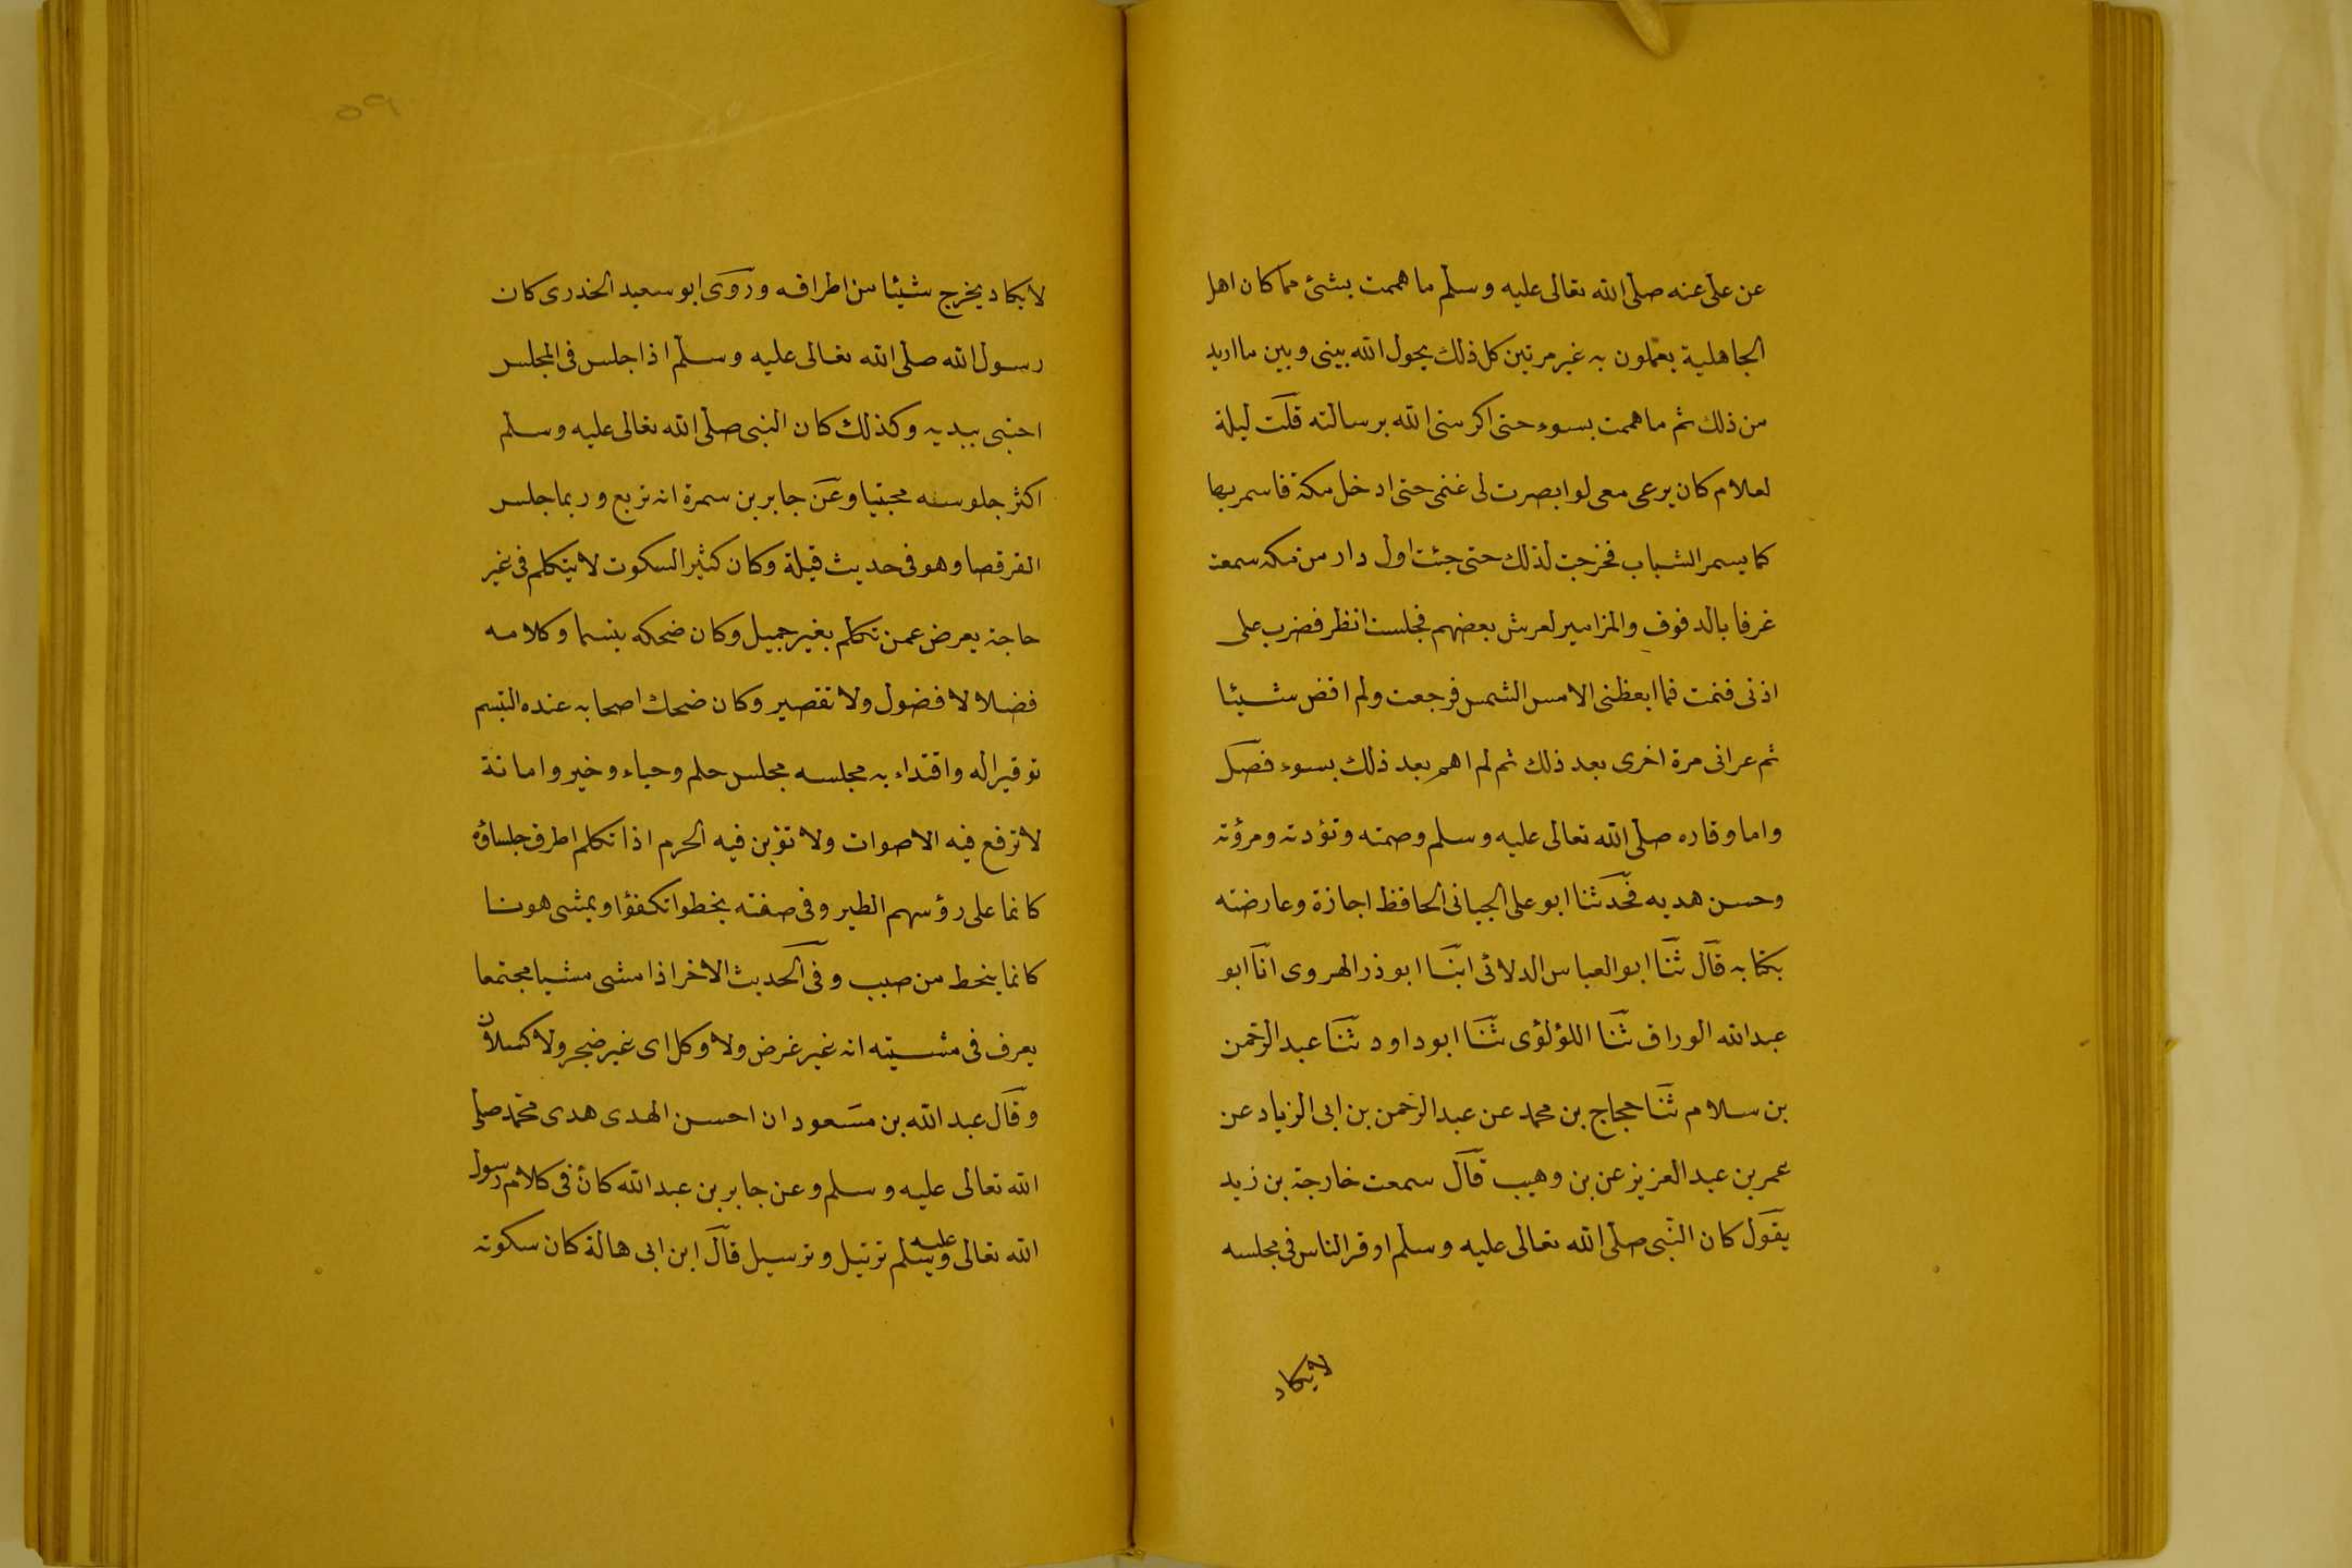 عن علي عنه صلى الله تعالى عليه وسلم ما هممت بشئ مما كان اهل
الجاهلية يعملون به غير مرتين كل ذلك يحول الله بيني وبين ما اريد
من ذلك ثم ما هممت بسوء حتى اكرمني الله برسالته قلت ليلة
لغلام كان يرعى معي لو ابصرت لي غنمي حتى ادخل مكة فاسمر بها
كما يسمر الشباب فخرجت لذلك حتى جئت اول دار من مكة سمعت
غرفا بالدفوف والمزامير لعرش بعضهم فجلست انظر فضرب على
اذني فنمت فما ابعظني الا مس الشمس فرجعت ولم اقض شيئا
ثم عراني مرة اخرى بعد ذلك ثم لم اهم بعد ذلك بسوء فصل
واما وقاره صلى الله تعالى عليه وسلم وصمته وتؤدته ومرؤته
وحسن هديه فحدثنا ابو علي الجياني الحافظ اجازة وعارضته
بكتابه قال ثنا ابو العباس الدلائي ابنا ابو ذر الهروي انا ابو
عبد الله الوراق ثنا اللؤلؤى ثنا ابو داود ثنا عبد الرحمن
بن سلام ثنا حجاج بن محمد عن عبد الرحمن بن ابي الزياد عن
عمر بن عبد العزيز عن بن وهيب قال سمعت خارجة بن زيد
يقول كان النبي صلى الله تعالى عليه وسلم اوقر الناس في مجلسه
لا يكاد
٩٥
لا يكاد يخرج شيئا من اطرافه وروى ابو سعيد الخدرى كان
رسول الله صلى الله تعالى عليه وسلم اذا جلس في المجلس
احتبى بيديه وكذلك كان النبي صلى الله تعالى عليه وسلم
اكثر جلوسه محتبيا وعن جابر بن سمرة انه تربع وربما جلس
القرفصا وهو في حديث قيلة وكان كثير السكوت لا يتكلم في غير
حاجة يعرض عمن تكلم بغير جميل وكان ضحكه تبسما وكلامه
فضلا لا فضول ولا تقصير وكان ضحك اصحابه عنده التبسم
توقيرا له واقتداء به مجلسه مجلس حلم وحياء وخير وامانة
لا ترفع فيه الاصوات ولا تؤبن فيه الحرم اذا تكلم اطرق جلساؤه
كانما على رؤسهم الطير وفي صفته يخطو اتكفؤا ويمشي هونا
كانما ينحط من صبب وفي الحديث الاخر اذا مشى مشيا مجتمعا
يعرف في مشيته انه غير غرض ولا وكل اى غير ضجر ولا كسلان
وقال عبد الله بن مسعود ان احسن الهدى هدى محمد صلى
الله تعالى عليه وسلم وعن جابر بن عبد الله كان في كلام رسول
الله تعالى عليه وسلم ترتيل وترسيل قال ابن ابي هالة كان سكوته